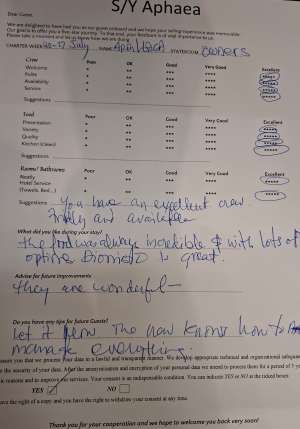 S/Y Aphaea
Dear Guest,
We are delighted to have had you as our guest onboard and we hope your sailing experience was memorable.
Our goal is to offer you a five-star journey. To that end, your feedback is of vital importance to us.
Please take a moment and let us know how we are doing.
CHARTER WEEK July NAME STATEROOM owners
Crew Poor OK Good Very Good Excellent
Welcome * ** *** **** *****
Safety * ** *** **** *****
Availability * ** *** **** *****
Service * ** *** **** *****
Suggestions
Food Poor OK Good Very Good Excellent
Presentation * ** *** **** *****
Variety * ** *** **** *****
Quality * ** *** **** *****
Kitchen (Clean) * ** *** **** *****
Suggestions
Rooms/ Bathrooms Poor OK Good Very Good Excellent
Neatly * ** *** **** *****
Hotel Service
(Towels, Bed...) * ** *** **** *****
Suggestions You have an excellent crew
and available
What did you like during your stay?
the food was always incredible & with lots of
options is great.
Advise for future improvements
they are wonderful—
Do you have any tips for future Guests?
Let knows how to
manage everything.
assure you that we process your data in a lawful and transparent manner. We develop appropriate technical and organizational
the security of your data. After the anonymization and encryption of your personal data we intend to process them for a period of 5
reasons and to improve our services. Your consent is an indispensable condition. You can indicate YES or NO at the ticked boxes:
YES NO
have the right of a copy and you have the right to withdraw your consent at any time.
Thank you for your cooperation and we hope to welcome you back very soon!